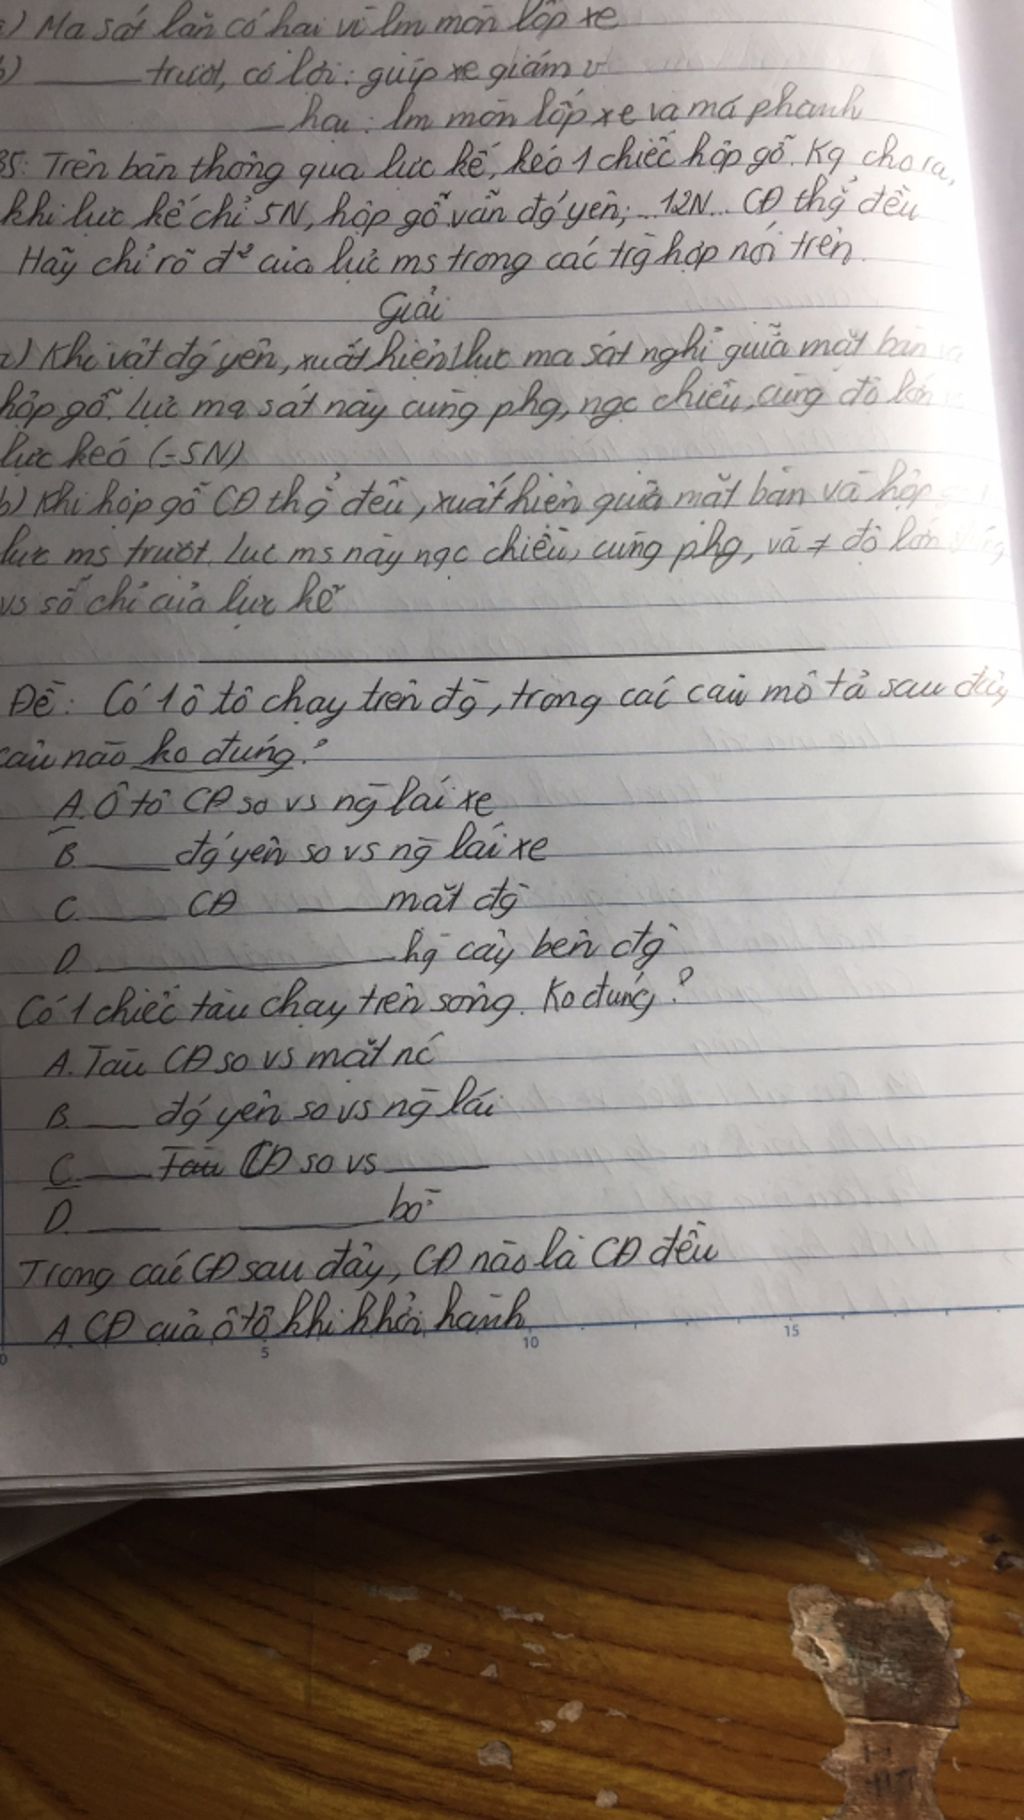 a) Ma sát lăn có hại vì lm mòn lốp xe
b) ____ trượt, có lợi: giúp xe giảm v
____ hại: lm mòn lốp xe và má phanh
B5: Trên bàn thông qua lực kế, kéo 1 chiếc hộp gỗ. Kq cho ra,
khi lực kế chỉ 5N, hộp gỗ vẫn đg' yên; ...12N... CĐ thg̉ đều
Hãy chỉ rõ đ² của lực ms trong các trg̀ hợp nói trên.
Giải
a) Khi vật đg' yên, xuất hiện lực ma sát nghỉ giữa mặt bàn và
hộp gỗ. Lực ma sát này cùng phg, ngc chiều, cùng độ lớn vs
lực kéo (=5N)
b) Khi hộp gỗ CĐ thg̉ đều, xuất hiện giữa mặt bàn và hộp
lực ms trượt. Lực ms này ngc chiều, cùng phg, và ≠ độ lớn
vs số chỉ của lực kế
Đề: Có 1 ô tô chạy trên đg̀, trong các câu mô tả sau đây
câu nào ko đúng?
A. Ô tô CĐ so vs ng̀ lái xe
B. ____ đg' yên so vs ng̀ lái xe
C. ____ CĐ ____ mặt đg̀
D. ____ hg̀ cây bên đg̀
Có 1 chiếc tàu chạy trên sông. Ko đúng?
A. Tàu CĐ so vs mặt nc'
B. ____ đg' yên so vs ng̀ lái
C. ____ Tàu CĐ so vs ____
D. ____ ____ bờ
Trong các CĐ sau đây, CĐ nào là CĐ đều
A CĐ của ô tô khi khởi hành
0 5 10 15